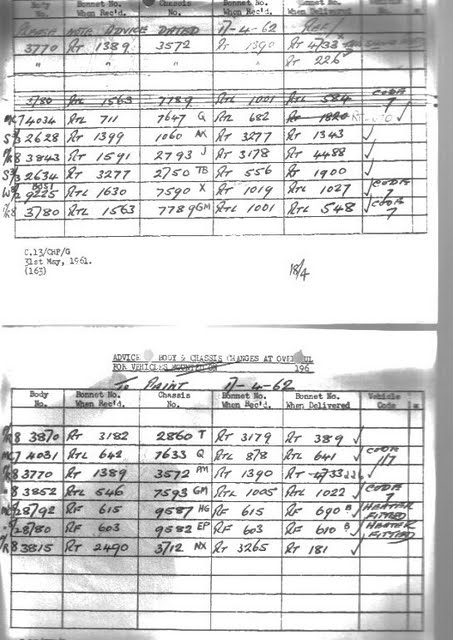 Body No. Bonnet No. When Rec'd. Chassis No. Bonnet No. When Rec'd. Bonnet No. When Delivered Vehicle No.
PLEASE NOTE ADVICE DATED 17-4-62
3770 RT 1389 3572 RT 1390 RT 4733
" " " RT 226
3780 RTL 1563 7789 RTL 1001 RTL 584 CODE 7
7 4034 RTL 711 7647 Q RTL 682 RT 1820 ✓
S3 2628 RT 1399 1060 NK RT 3277 RT 1343 ✓
8 3843 RT 1591 2793 J RT 3178 RT 4488 ✓
S3 2634 RT 3277 2750 TB RT 556 RT 1900 ✓
9225 RTL 1630 7590 X RT 1019 RTL 1027 ✓ CODE 7
8 3780 RTL 1563 7789 GM RTL 1001 RTL 548 ✓ CODE 7
C.13/CHP/G
31st May, 1961.
(163)
18/4
ADVICE BODY & CHASSIS CHANGES AT OVERHAUL
FOR VEHICLES 196
TO PAINT 17-4-62
Body No. Bonnet No. When Rec'd. Chassis No. Bonnet No. When Rec'd. Bonnet No. When Delivered Vehicle Code
8 3870 RT 3182 2860 T RT 3179 RT 389 ✓
7 4031 RTL 642 7633 Q RTL 878 RTL 641 ✓ CODE
8 3770 RT 1389 3572 AM RT 1390 RT 4733 226 ✓
8 3852 RTL 546 7593 GM RTL 1005 RTL 1022 ✓ CODE 7
28/92 RF 615 9587 HG RF 615 RF 690 B ✓ HEATER FITTED
28/80 RF 603 9582 EP RF 603 RF 610 B ✓ HEATER FITTED
8 3815 RT 2490 3712 NX RT 3265 RT 181 ✓